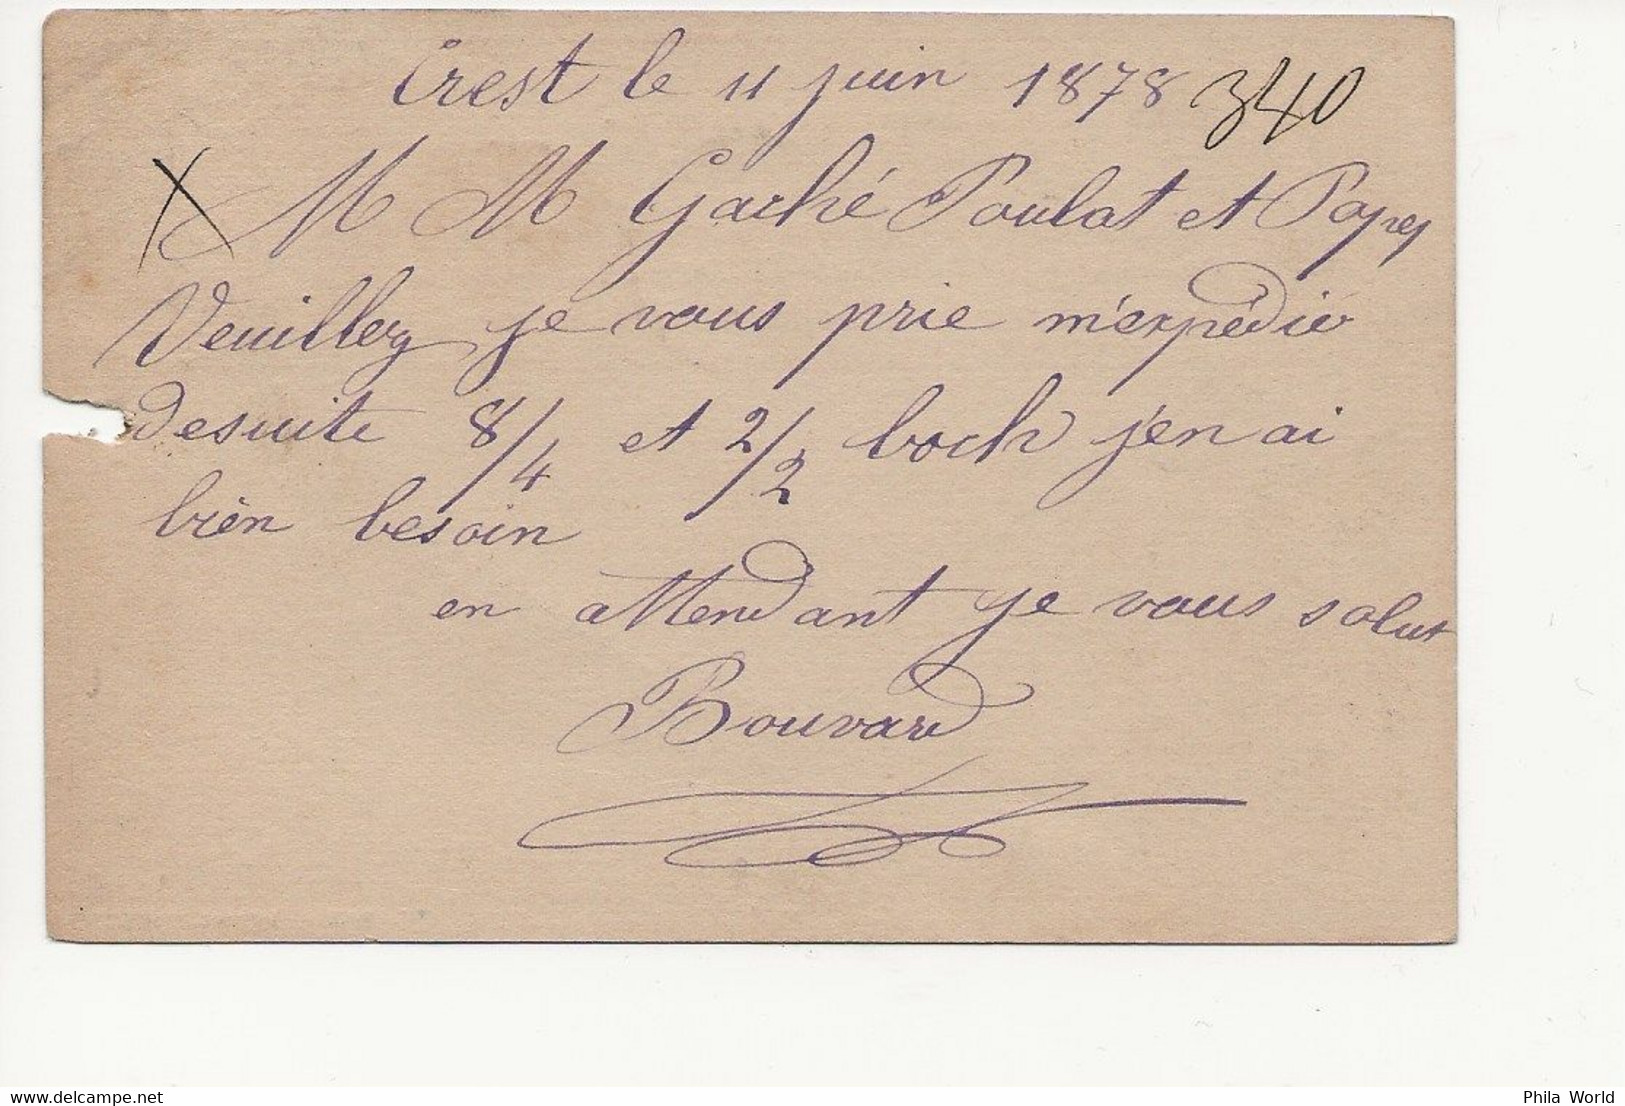 Crest le 11 juin 1878 340
X M M Gaché Poulat et
Veuillez je vous prie m'expédié
desuite 8/4 et 2/2 boch j'en ai
bien besoin
en attendant je vous salut
Bouvard
Phila World